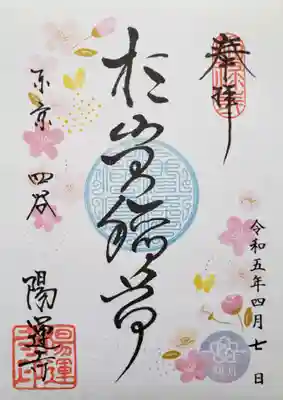 奉拝
令和五年四月七日
於岩稲荷
東京 四谷
陽運寺
陽運
寺印